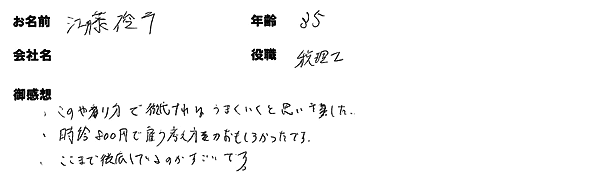 お名前 江藤 年齢 35
会社名 役職 税理士
御感想
、このやり方で徹底すればうまくいくと思いました。
、時給800円で雇う考え方もおもしろかったです。
、ここまで徹底しているのがすごいです